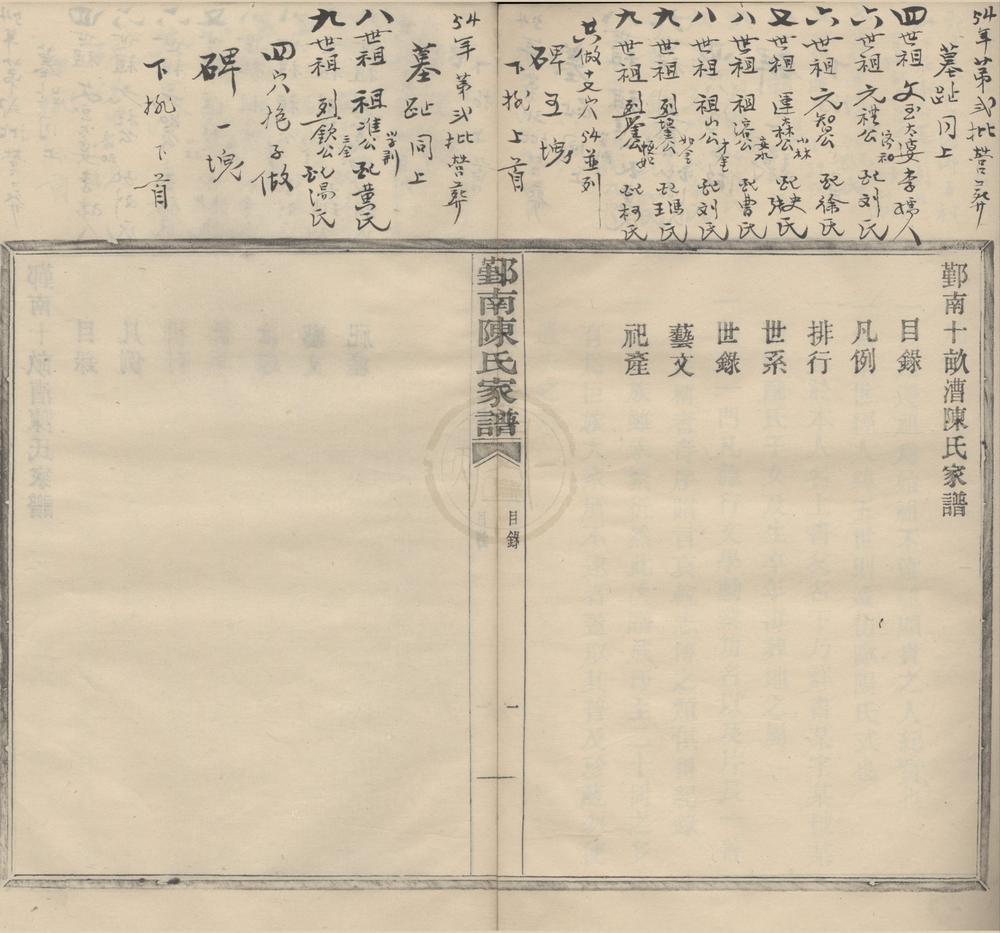 54年第弍批营葬
墓趾同上
四世祖 文玉大婆李孺人
六世祖 元禮公 配刘氏
六世祖 元智公 配徐氏
又世祖 運森公 配史氏 張氏
八世祖 祖溶公 配曹氏
八世祖 祖山公 配刘氏
九世祖 列 公 配馮氏 王氏
九世祖 列 公 配柯氏
共做 穴 54並列
碑五塊
下挑上首
54年第弍批营葬
墓趾同上
八世祖 祖准公 配黄氏
九世祖 列欽公 配湯氏
四穴 子做
碑一塊
下挑下首
鄞南十畝漕陳氏家譜
目錄
凡例
排行
世系
世錄
藝文
祀產
鄞南陳氏家譜
目錄
一